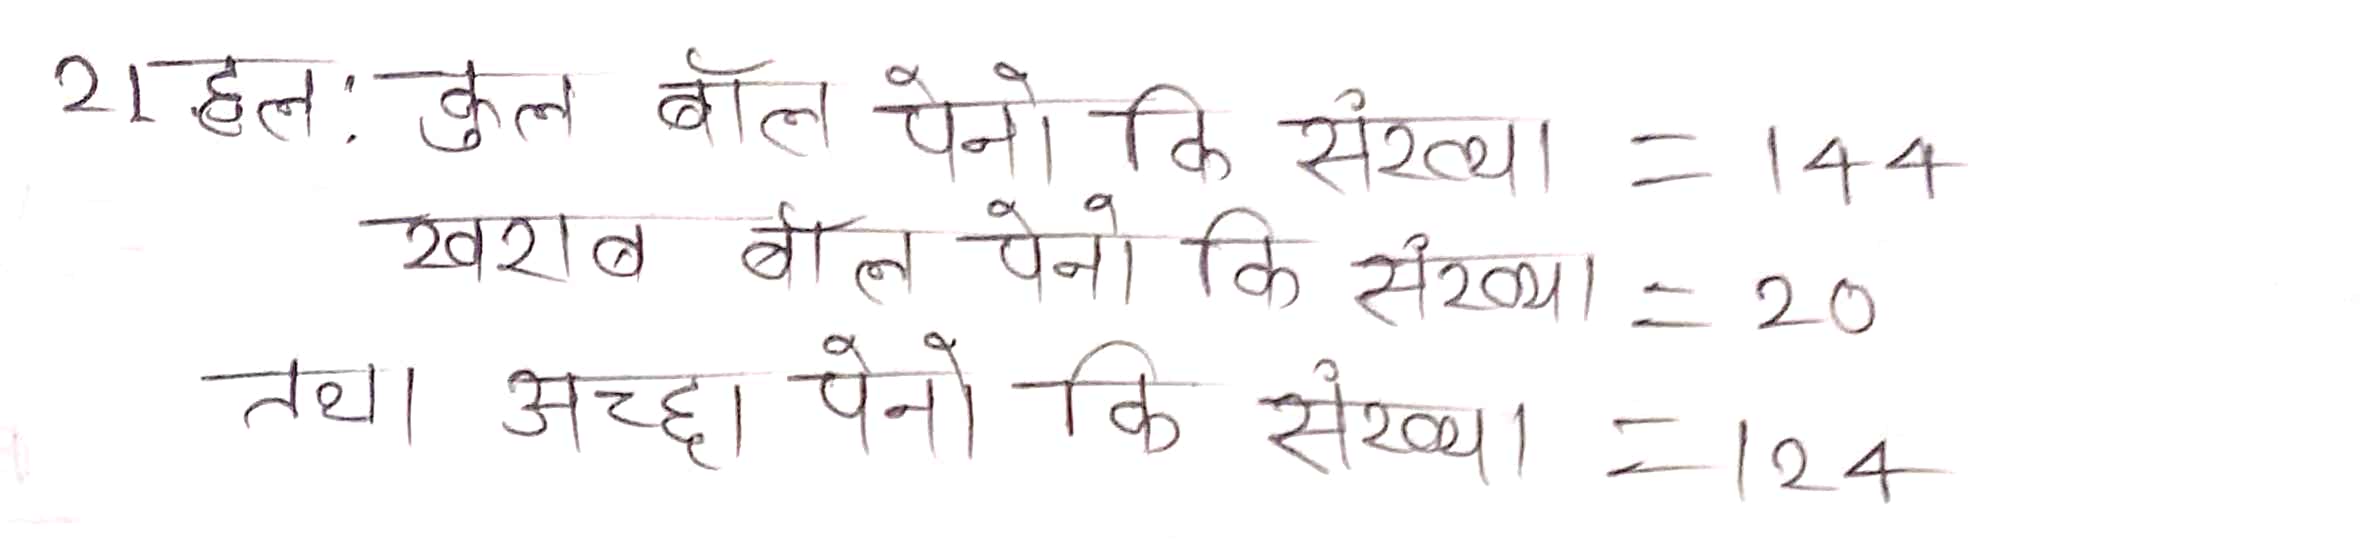 21 हल: कुल बॉल पेनो कि संख्या = 144
खराब बॉल पेनो कि संख्या = 20
तथा अच्छा पेनो कि संख्या = 124